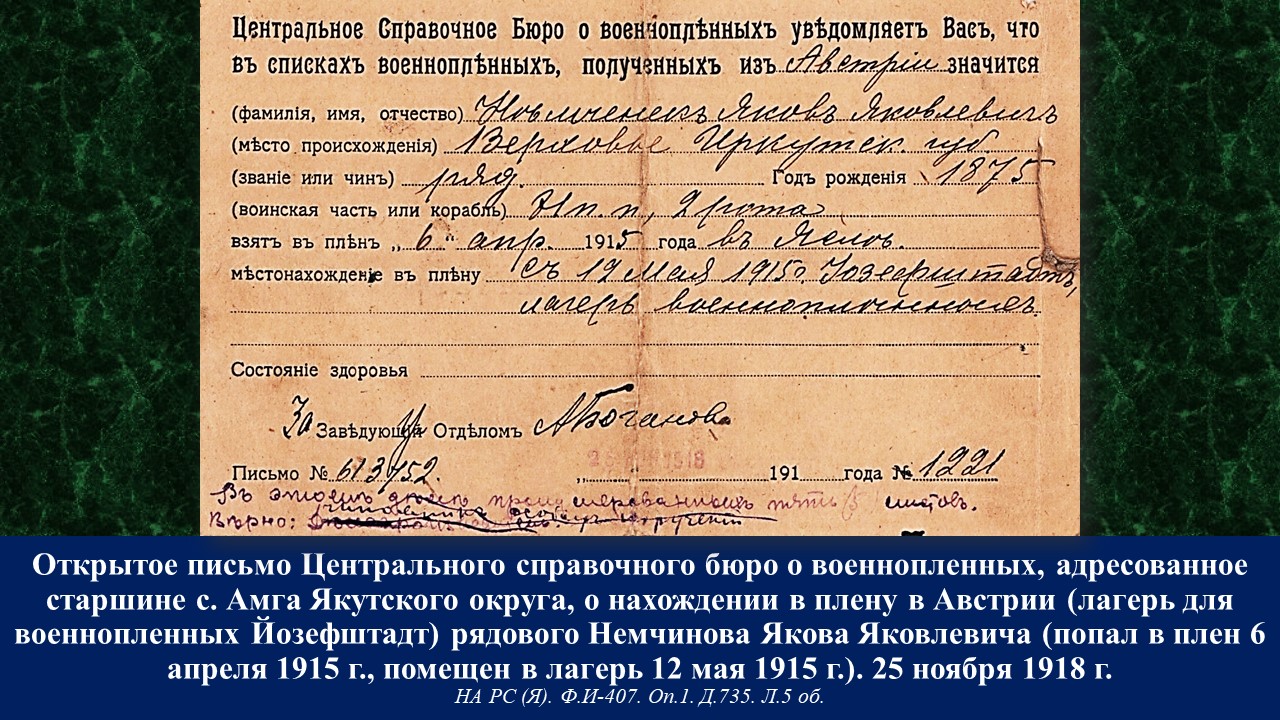 Центральное Справочное Бюро о военноплѣнныхъ увѣдомляетъ Васъ, что
въ спискахъ военноплѣнныхъ, полученныхъ изъ Австріи значится
(фамилія, имя, отчество) Яковъ Яковлевичъ
(мѣсто происхожденія) Верховье Иркутск. губ.
(званіе или чинъ) ряд. Годъ рожденія 1875
(воинская часть или корабль) п. п, 2 рота
взятъ въ плѣнъ „ 6 “ апр. 1915 года въ
мѣстонахожденіе въ плѣну съ 12 Мая 1915 Іозефштадтъ,
лагерь
Состояніе здоровья
За Завѣдующ Отдѣломъ
Письмо № 613752. „ “ 191 года № 1221
Въ этомъ пять 5 листов.
Вѣрно:
Открытое письмо Центрального справочного бюро о военнопленных, адресованное
старшине с. Амга Якутского округа, о нахождении в плену в Австрии (лагерь для
военнопленных Йозефштадт) рядового Немчинова Якова Яковлевича (попал в плен 6
апреля 1915 г., помещен в лагерь 12 мая 1915 г.). 25 ноября 1918 г.
НА РС (Я). Ф.И-407. Оп.1. Д.735. Л.5 об.